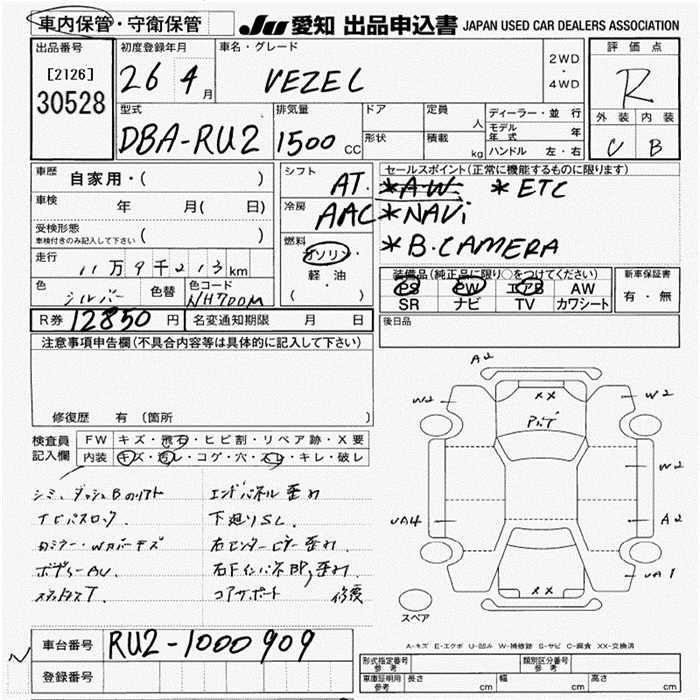 車内保管・守衛保管
JU 愛知 出品申込書 JAPAN USED CAR DEALERS ASSOCIATION
出品番号
[2126]
30528
初度登録年月
26 4 月
車名・グレード
VEZEL
2WD
・
4WD
評価点
R
外装 内装
C B
型式
DBA-RU2
排気量
1500 CC
ドア
形状
定員
人
積載
kg
ディーラー・並行
モデル年式 年
ハンドル 左・右
車歴
自家用・( )
車検
年 月( 日)
受検形態
車検付きのみ記入して下さい ( )
走行
11万9千213km
色
シルバー
色替
色コード
NH700M
シフト
AT
冷房
AAC
燃料
ガソリン
軽油
( )
セールスポイント(正常に機能するものに限ります)
*AW *ETC
*NAVi
*B.CAMERA
装備品(純正品に限り○をつけてください)
PS PW エアB AW
SR ナビ TV カワシート
新車保証書
有・無
R券 12850 円
名変通知期限 月 日
後日品
注意事項申告欄(不具合内容等は具体的に記入して下さい)
修復歴 有 (箇所
検査員
記入欄
FW キズ・飛石・ヒビ割・リペア跡・X要
内装 キズ・汚レ・コゲ・穴・スレ・キレ・破レ
シミ、ダッシュBのリフト
ボディーAU.
エンドパネル歪み
下廻りSL.
右センターピラー歪み.
コアサポート 修復
A2
W2
W2
XX
W2
UA4
A2
XX
UA1
スペア
A-キズ E-エクボ U-凹み W-補修跡 S-サビ C-腐食 XX-交換済
車台番号 RU2-1000909
登録番号
型式指定番号
参考
類別区分番号
参考
車庫証明用
参考
長さ cm 幅 cm 高さ cm